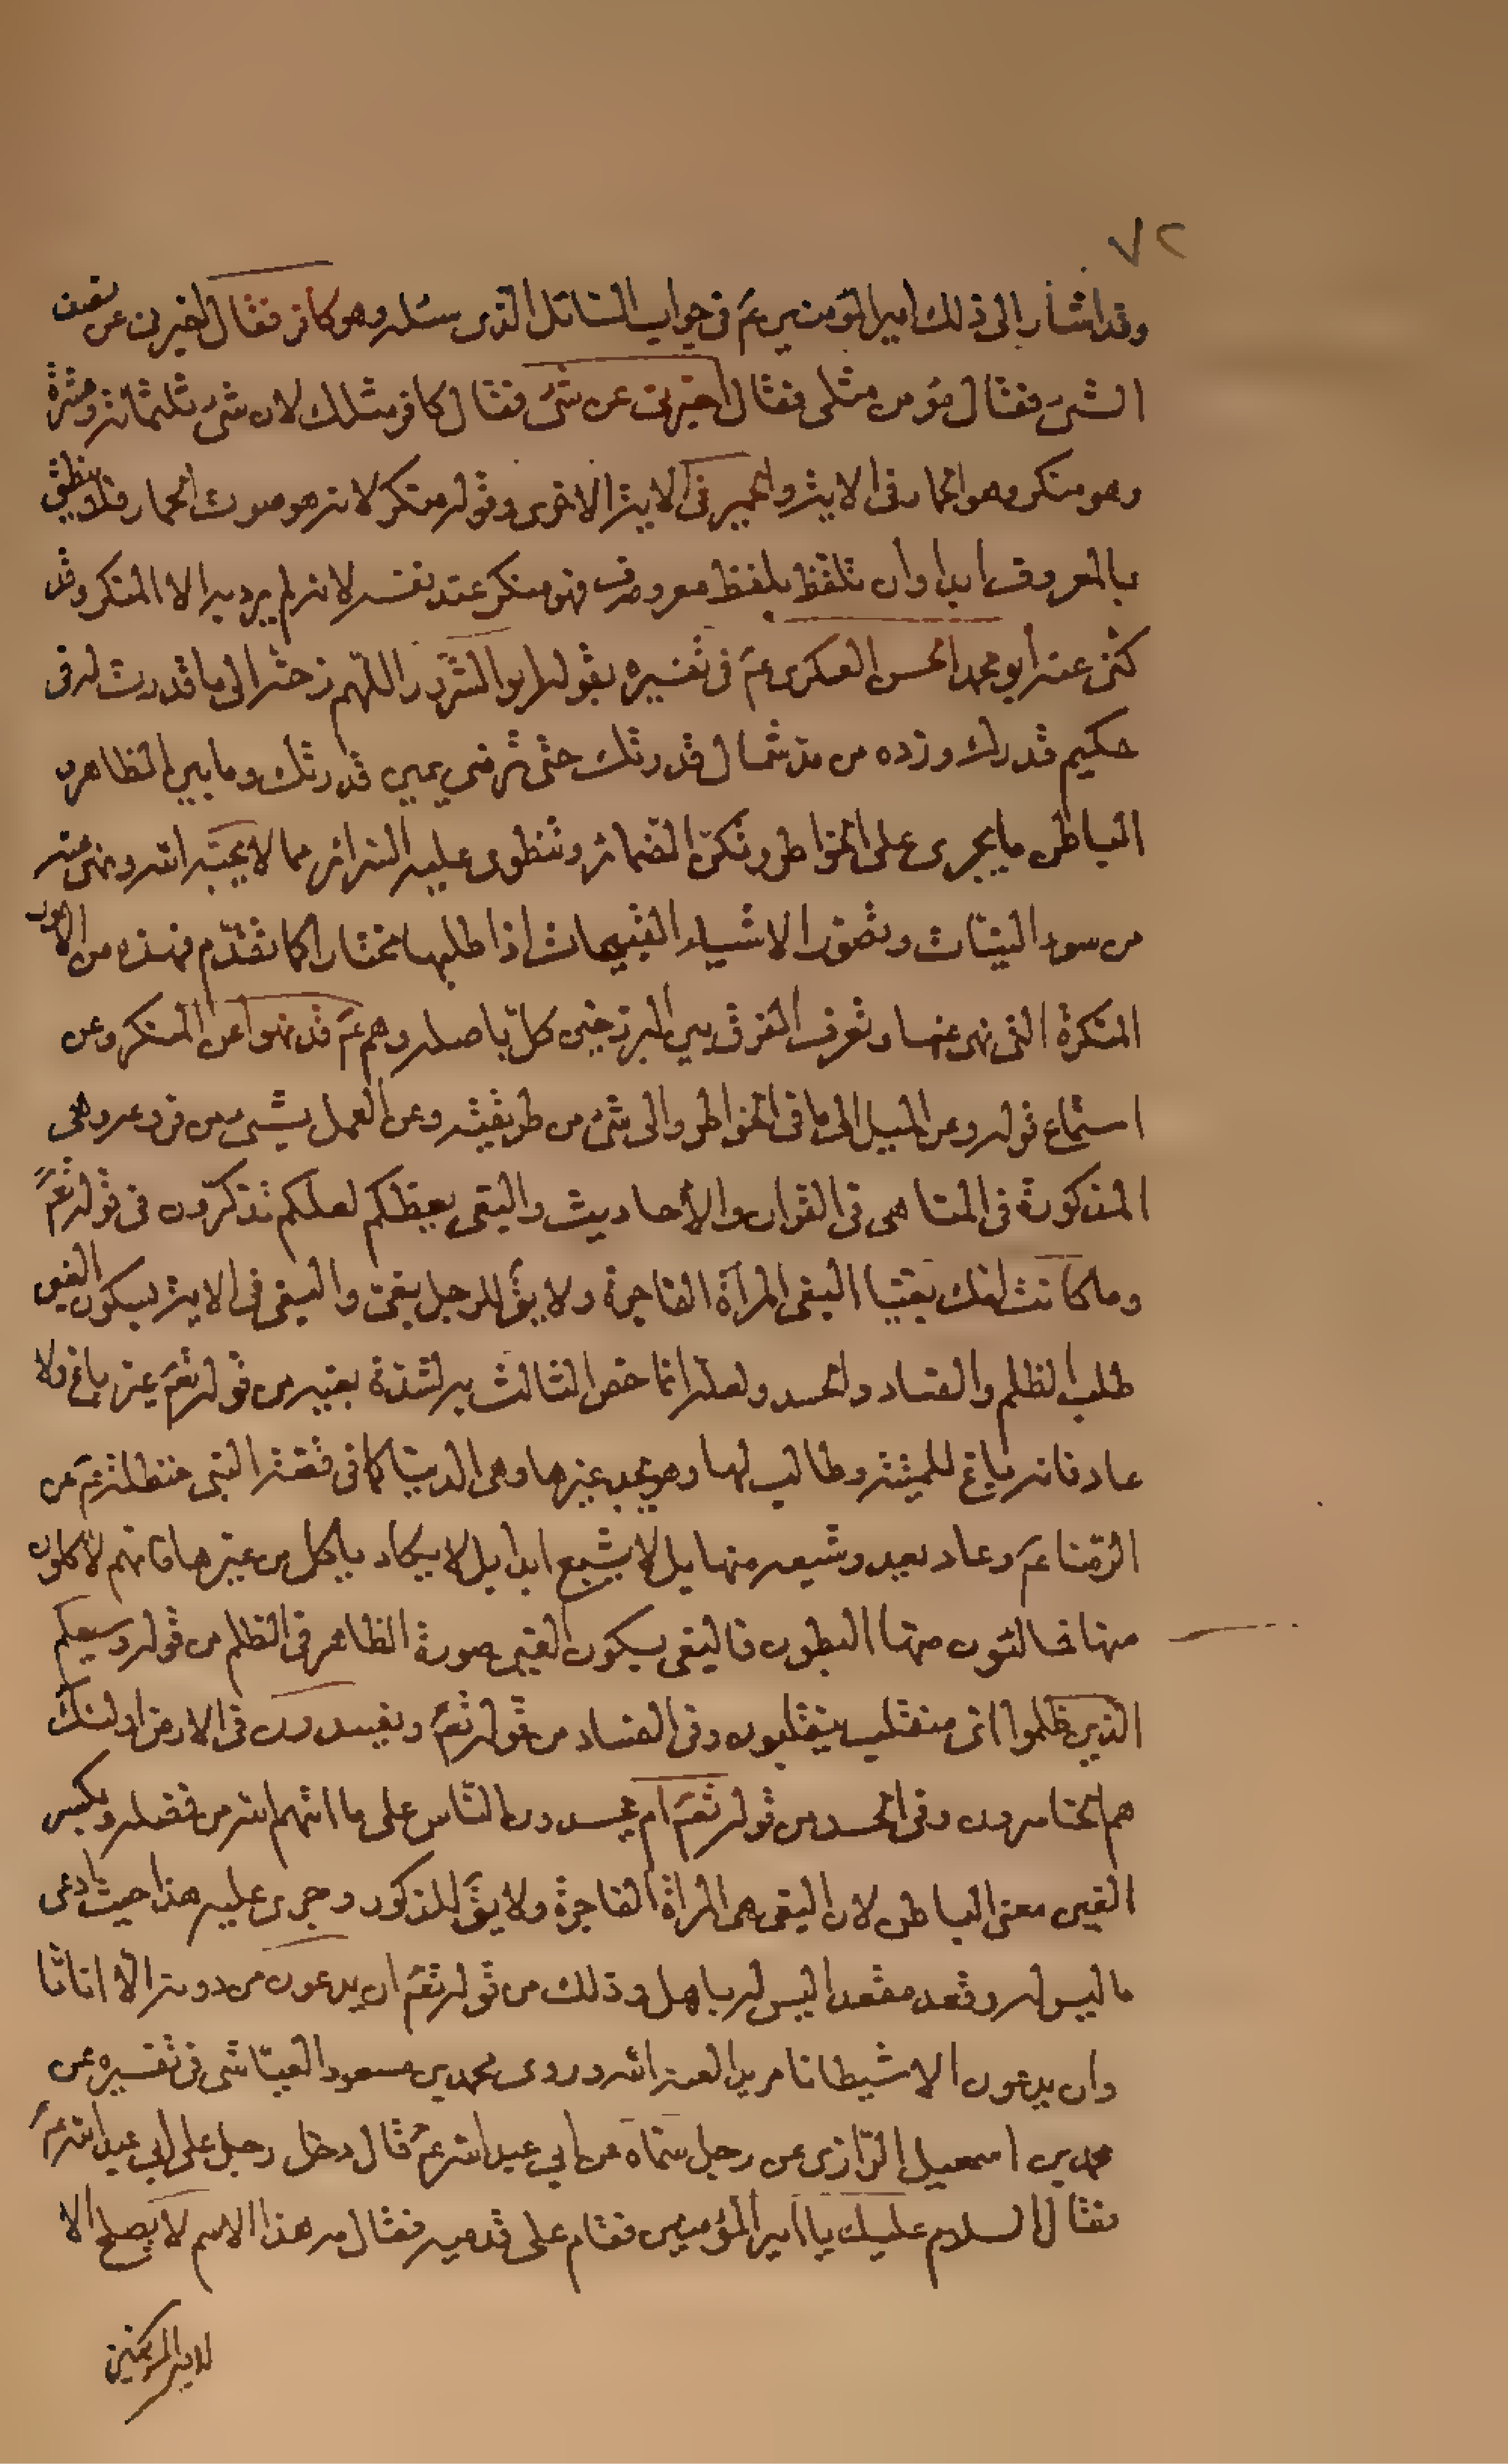 ٧٢
وقد اشار الى ذلك امير المؤمنين عم فى جواب السائل الذى سئله وهو كافر فقال اخبرنى عن نصف
الشئ فقال مؤمن مثلى فقال اخبرنى عن شئ فقال كافر مثلك لان شئ ثلثمائة وعشرة
وهو منكر وهو الحمار فى الاية والحمير فى الاية الاخرى وقوله منكر لانه هو صوت الحمار فلا ينطق
بالمعروف ابدا وان تلفظ بلفظ معروف فهو منكر عند نفسه لانه لم يرد به الا المنكر وقد
كنى عنه أبو محمد الحسن العسكرى عم فى تفسيره بقوله ابو الشرور اللهم زحه الى ما قدرت له فى
حكيم قدرك وزده من مد شمال قدرتك حتى ترضى يمين قدرتك وما بين الظاهر و
الباطن ما يجرى على الخواطر وتكن الضمائر وتنطوى عليه السرائر مما لا يحبه الله ونهى عنه
من سوء النيات وتصور الاشياء القبيحات اذا طلبها مختارا كما تقدم فهذه من الامور
المنكرة التى نهى عنها وتعرف الفرق بين البرزخين كل باصله وهم عم قد نهوا عن المنكر وعن
استماع قوله وعن الميل الى ما فى الخواطر والى شئ من طريقته وعن العمل بشئ من فروعه وهى
المذكورة فى المناهى فى القران والأحاديث والبغى يعظكم لعلكم تذكرون فى قوله تعم
وما كانت امك بغيا البغى المرأة الفاجرة ولا يق للرجل بغى والبغى فى الاية بسكون الغين
طلب الظلم والفساد والحسد ولعله انما خص الثالث به لشدة بغيه من قوله تعم غير باغ ولا
عاد فانه باغ للميتة وطالب لها وهو يجد غيرها وهى الدنيا كما فى قصة التى حنظلة عم عن
الرضا عم وعاد بعد وشبعه منها بل لا يشبع ابدا بل لا يكاد ياكل من غيرها فانهم لاكلون
منها فمالئون منها البطون فالبغى بسكون الغين صورة الظاهر فى الظلم من قوله وسيعلم
الذين ظلموا اى منقلب ينقلبون وفى الفساد من قوله تعم ويفسدون فى الارض اولئك
هم الخاسرون وفى الحسد من قوله تعم ام يحسدون الناس على ما اتيهم الله من فضله وبكسر
الغين معنى الباطن لان البغى هى المرأة الفاجرة ولا يق للذكور وجرى عليه هذا حيث ادعى
ما ليس له وقعد مقعدا ليس له باهل وذلك من قوله تعم ان يدعون من دونه الا اناثا
وان يدعون الا شيطانا مريدا لعنه الله وروى محمد بن مسعود العياشى فى تفسيره عن
محمد بن اسمعيل الرازى عن رجل سماه عن ابى عبد الله عم قال دخل رجل على ابى عبد الله عم
فقال السلام عليك يا امير المؤمنين فقام على قدميه فقال مه هذا الاسم لا يصلح الا
لامير المؤمنين